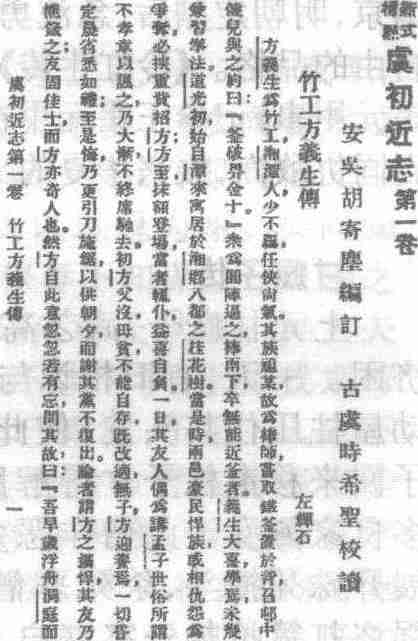 新式標點 虞初近志 第一卷
安吳胡寄塵編訂 古虞時希聖校讀
竹工方義生傳 左輝石
方義生爲竹工,湘潭人少不羈,任俠尚氣其族祖某,故爲鏢師嘗取鐵釜覆於脊召鄰中
健兒與之約曰:『釜破畀金十』衆爲圍陣逼之棒雨下卒無能近釜者義生大喜學焉未幾
習學法道光初始自潭來寓居於湘鄉八都之桂花樹當是時兩邑豪民悍族或相仇怨爲
爭奪必挾重貲招方;方至抹額登場當者輒仆益喜自負一日其友人偶爲講孟子世俗所謂
不孝章以諷之乃大慚不終席馳去初方父沒母貧不能自存既改適無子方迎養焉一切昏
定晨省悉如禮;至是悔乃更引刀施鋸以供朝夕而謝其黨不復出論者謂方之獷悍其友乃
箴之友固佳士而方亦奇人也。然方自此意忽忽若有忘問其故曰:『吾早歲浮舟洞庭而
虞初近志第一卷 竹工方義生傳 一